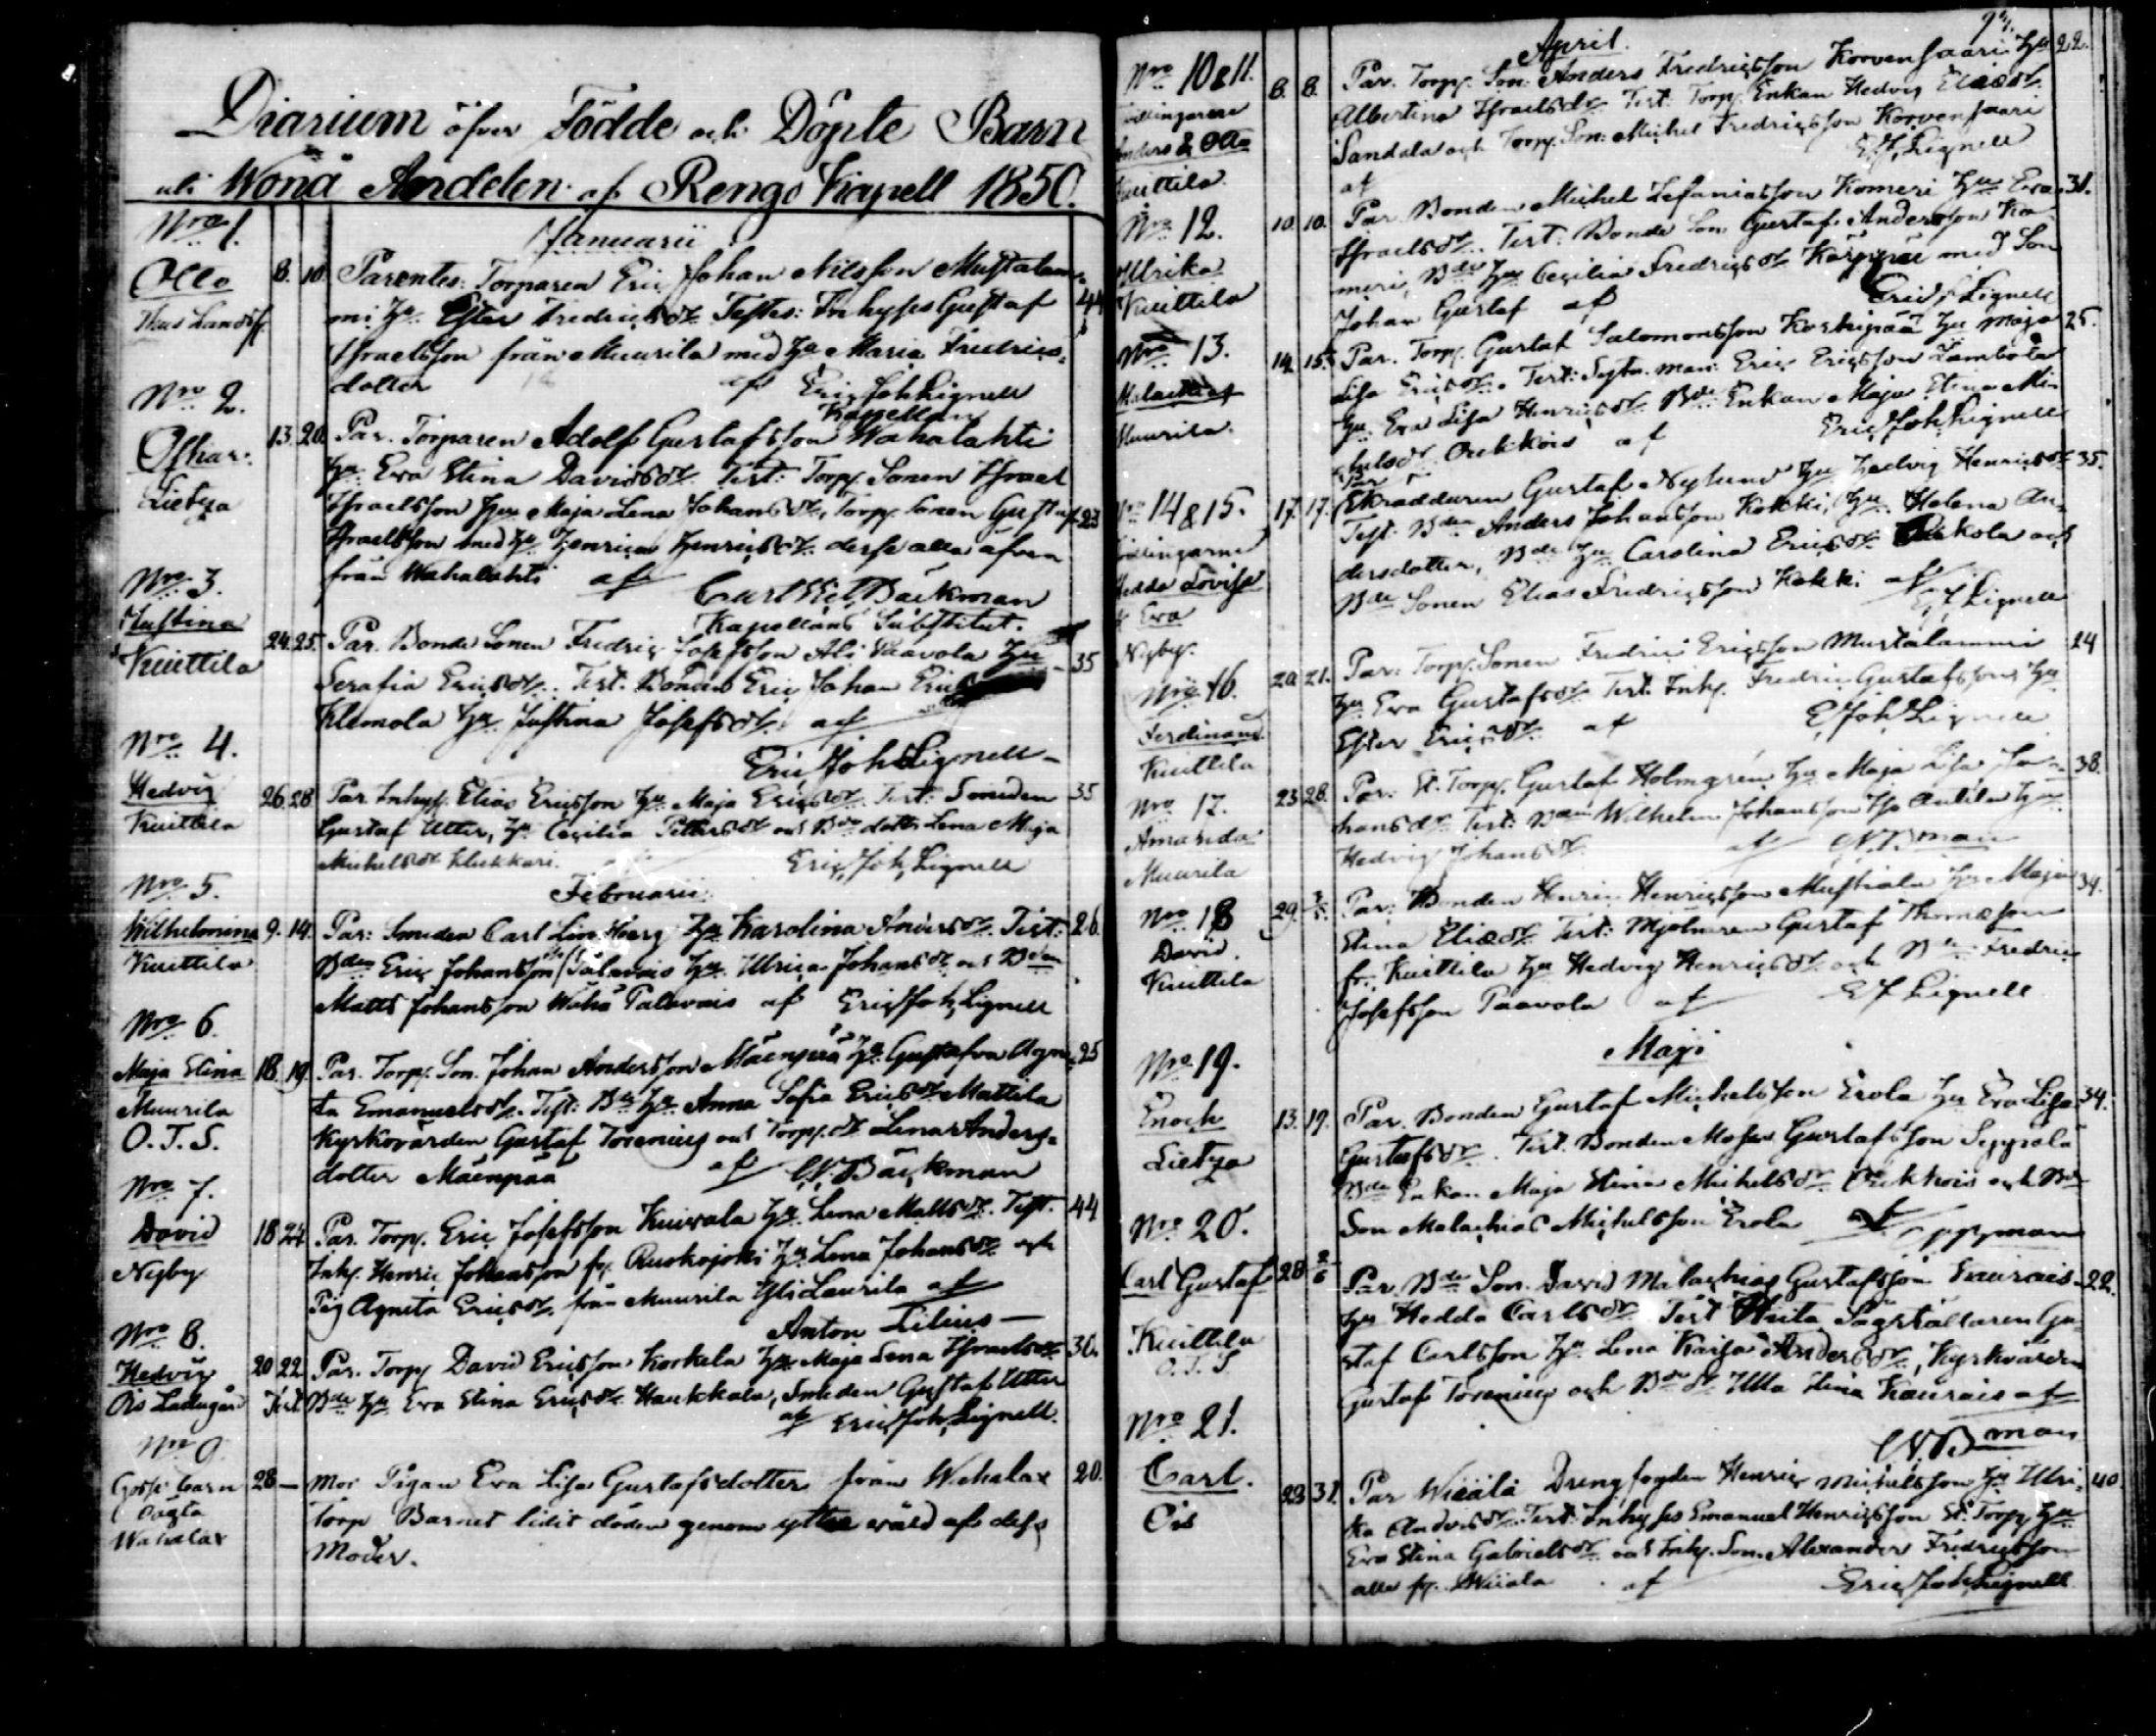 Diarium öfver Födde och Döpte Barn
uti Wånå Andelen af Rengo Kapell 1850.
Januarii
Nro 1.
Otto
8. 10. Parentes: Torparen Eric Johan Nilsson Mustalam-
mi Hu Ester Fredricsdr Testes: Inhyses Gustaf 44
Israelsson från Muurila med Hu Maria Fredrics-
dotter af Eric Joh Lignell
Kapellan
Nro 2.
Oskar
Lietza
13. 20. Par. Torparen Adolf Gustafsson Wahalahti
Hu Eva Stina Davidsdr Test: Torp. Sonen Israel
Israelsson Hu Maja Lena Johansdr, Torp. Sonen Gustaf 23
Israelsson med Hu Henrica Henricsdr dessa alla äfven
från Wahalahti af Carl Bäckman
Kapellans Substitut.
Nro 3.
Justina
Kuittila
24. 25. Par. Bonde Sonen Fredric Josefsson Ali Paavola Hu 35
Serafia Ericsdr. Test. Bonden Eric Johan Erics
Klemola Hu Justina Josefsdr af
Eric Joh Lignell
Nro 4.
Hedvig
Kuittila
26. 28 Par Inhys. Elias Ericsson Hu Maja Ericsdr. Test: Smeden 35
Gustaf Utter, Hu Cecilia Pettersdr och Bde dottr Lena Maja
Michelsdr Klukkari. Eric Joh Lignell
Februarii
Nro 5.
Wilhelmina
Kuittila
9. 14. Par: Smeden Carl Lindberg Hu Karolina Andersdr. Test: 26.
Bden Eric Johansson Palavais Hu Ulrica Johansdr och Bden
Matts Johansson Wähä Palavais af Eric Joh Lignell
Nro 6.
Maja Stina
Muurila
O. T. S.
18. 19. Par. Torp. Son. Johan Andersson Mäenpää Hu Gustafva Agne- 25
ta Emanuelsdr. Test: Bde Hu Anna Sofia Ericsdr Mattila
Kyrkovärden Gustaf Torenius och Torp. dr Lena Anders-
dotter Mäenpää af Bäckman
Nro 7.
David
Nyby
18 24 Par. Torp. Eric Josefsson Kuivala Hu Lena Mattsdr. Test. 44
Inhy. Henric Johansson fr. Ruskojoki Hu Lena Johansdr och
Pig Agneta Ericsdr från Muurila Yli Laurila af
Anton Lilius
Nro 8.
Hedvig
Ois Ladugård
20 22 Par. Torp David Ericsson Korkela Hu Maja Lena Israelsdr 30.
Test Bde Hu Eva Stina Ericsdr Haukkala, Smeden Gustaf Utter
af Eric Joh Lignell.
Nro 9
Gosse barn
Oägta
Wahalax
28 — Mor Pigan Eva Lisa Gustafsdotter från Wahalax 20.
Torp Barnet lidit döden genom yttre wåld af dess
Moder.
April.
Nro 10 & 11.
Tvillingarne
Anders & Otto
Kuittila
8. 8. Par. Torp. Son. Anders Fredricsson Korvensaari Hu 22.
Albertina Israelsdr Test: Torp. Enkan Hedvig Eliædr
Sandala och Torp. Son: Michel Fredricsson Korvensaari
af E J Lignell
Nro 12.
Ulrika
Kuittila
10. 10. Par. Bonden Michel Zefaniasson Komeri Hu Eva 31.
Israelsdr. Test: Bonde Son Gustaf Andersson Ko-
meri, Bde Hu Cecilia Fredricsdr Käyrä med Son
Johan Gustaf af Eric J Lignell
Nro 13.
Muurila.
14. 15. Par. Torp. Gustaf Salomonsson Koskipää Hu Maja 25.
Lisa Ericsdr. Test: Sextman: Eric Ericsson Lambola
Hu Eva Lisa Henricsdr Bde Enkan Maja Stina Mi-
chelsdr Orekkois af Eric Joh Lignell
Nro 14 & 15.
Tvillingarne
Hedda Lovisa
& Eva
Nyby.
17. 17. Skraddaren Gustaf Nylund Hu Hedvig Henricsdr 35.
Test. Bden Anders Johansson Kokki, Hu Helena An-
dersdotter, Bde Hu Carolina Ericsdr och
Bde Sonen Elias Fredricsson Kokki af E J Lignell
Nro 16.
Ferdinand
Kuittila
20. 21. Par: Torp. Sonen Fredric Ericsson Mustalammi 24
Hu Eva Gustafsdr Test. Inhy. Fredric Gustafsson Hu
Ester Ericsdr af E Joh Lignell
Nro 17.
Amanda
Muurila
23 28. Par: St. Torp. Gustaf Holmgrén Hu Maja Lisa Jo- 38.
hansdr Test: Bden Wilhelm Johansson Anttila Hu
Hedvig Johansdr af Bman
Nro 18
David.
Kuittila
29. 3/5. Par: Bonden Henric Henricsson Mustiala Hu Maja 34.
Stina Eliædr Test: Mjolnaren Gustaf Thomæson
fr. Kuittila Hu Hedvig Henricsdr och Bde Fredric
Josefsson Paavola af E J Lignell
Maji
Nro 19.
Enoch
Lietza
13. 17. Par. Bonden Gustaf Michelsson Erola Hu Eva Lisa 34.
Gustafsdr. Test. Bonden Moses Gustafsson Seppälä
Bde Enkan Maja Stina Michelsdr Orekkois och Bde
Son Malachias Michelsson Erola
Nro 20.
Carl Gustaf
Kuittila
O. T. S.
28 2/6 Par Bde Son. David Malachias Gustafsson Kaurais 22.
Hu Hedda Carlsdr Test Gu-
staf Carlsson Hu Lena Kajsa Andersdr, Kyrkvärden
Gustaf Torenius och Bde dr Ulla Stina Kaurais af
Bman
Nro 21.
Carl.
Ois
22 31. Par Wiiala Drengfogden Henric Michelsson Hu Ulri- 40.
ka Andersdr. Test: Inhyses Emanuel Henricsson St. Torp. Hu
Eva Stina Gabrielsdr och Inhy. Son. Alexander Fredricsson
alla fr. Wiiala af Eric Joh Lignell